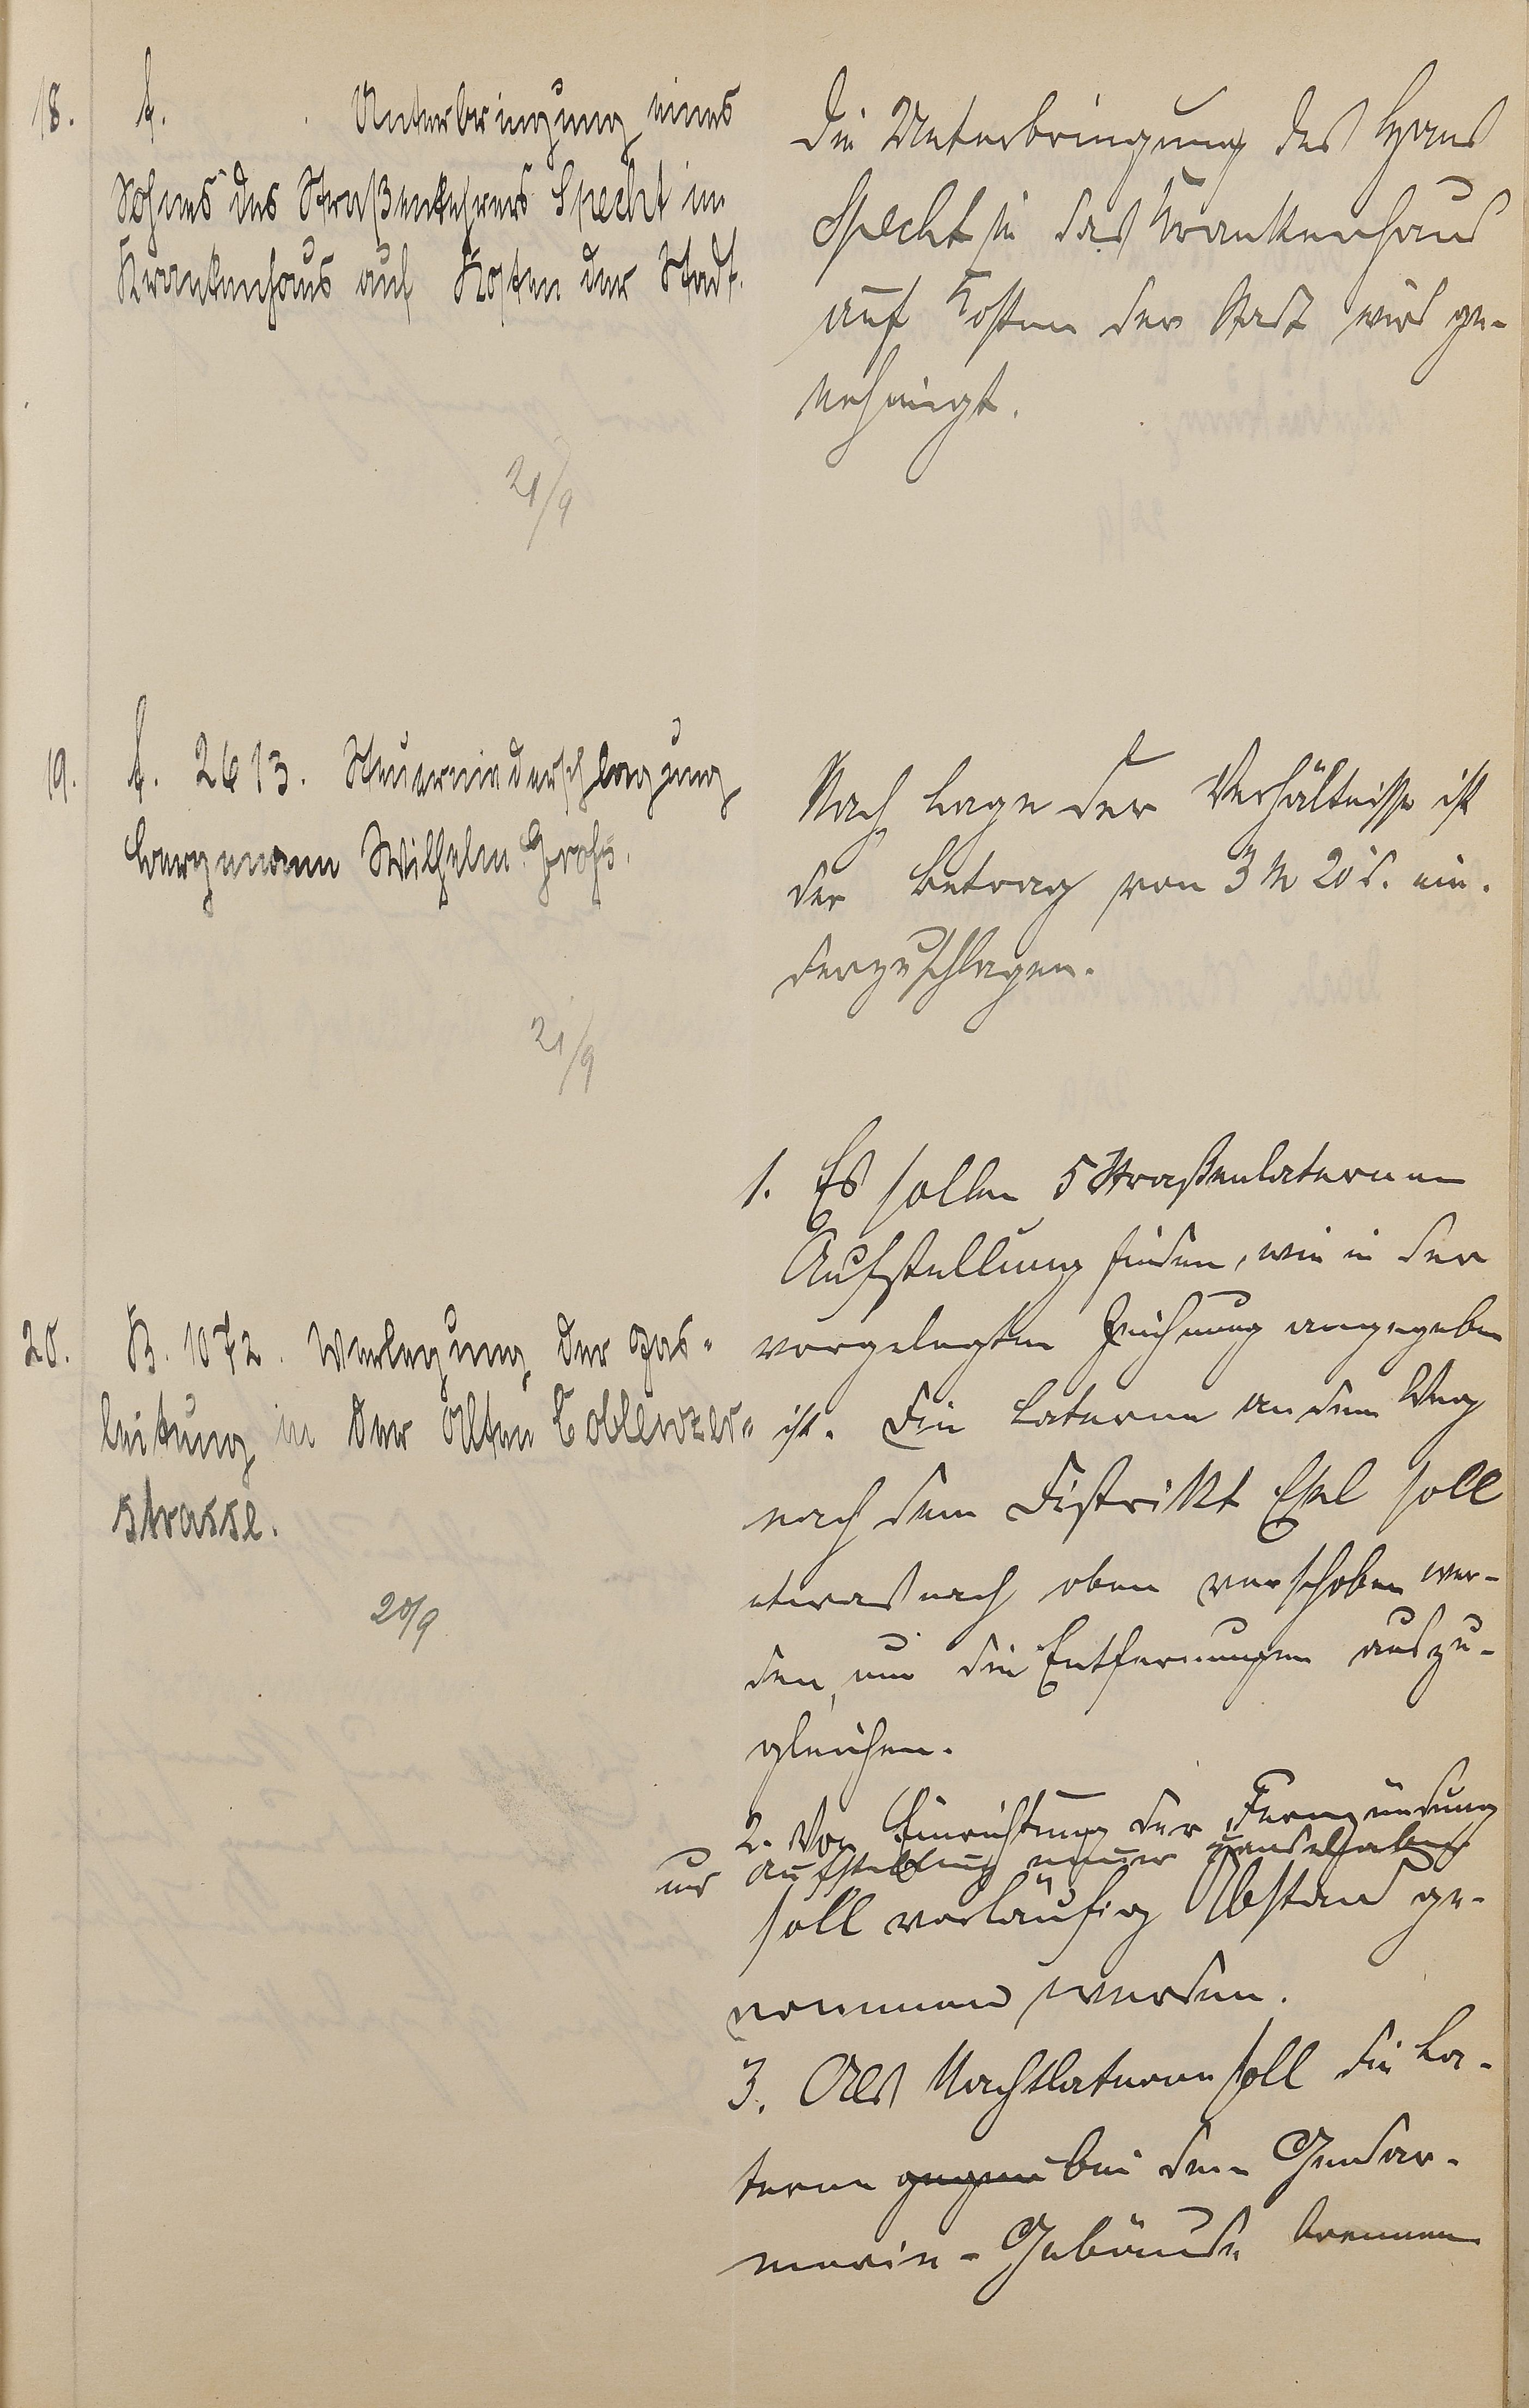 18. f. Unterbringung eines
Sohnes des Straßenkehrers Specht im
Krankenhaus auf Kosten der Stadt.
Die Unterbringung des Hans
Specht in das Krankenhaus
auf Kosten der Stadt wird ge-
nehmigt.
21/9
19. f. 2613. Steuerniederschlagung
Bergmann Wilhelm Groß.
Nach Lage der Verhältnisse ist
der Betrag von 3 M 20 d. nie-
derzuschlagen.
21/9
20. B. 1072. Verlegung der Gas-
leitung in der Alten Coblenzer-
strasse.
20/9
1. Es sollen 5 Straßenlaternen
Aufstellung finden, wie in der
vorgelegten Zeichnung angegeben
ist. Die Laterne an dem Weg
nach dem Distrikt Esel soll
etwas nach oben verschoben wer-
den, um die Entfernungen auszu-
gleichen.
2. Von Einrichtung der Fernzündung
und Aufstellung neuer
soll vorläufig Abstand ge-
nommen werden.
3. Als Nachtlaterne soll die La-
terne gegen bei dem Gendar-
merie-Gebäude brennen